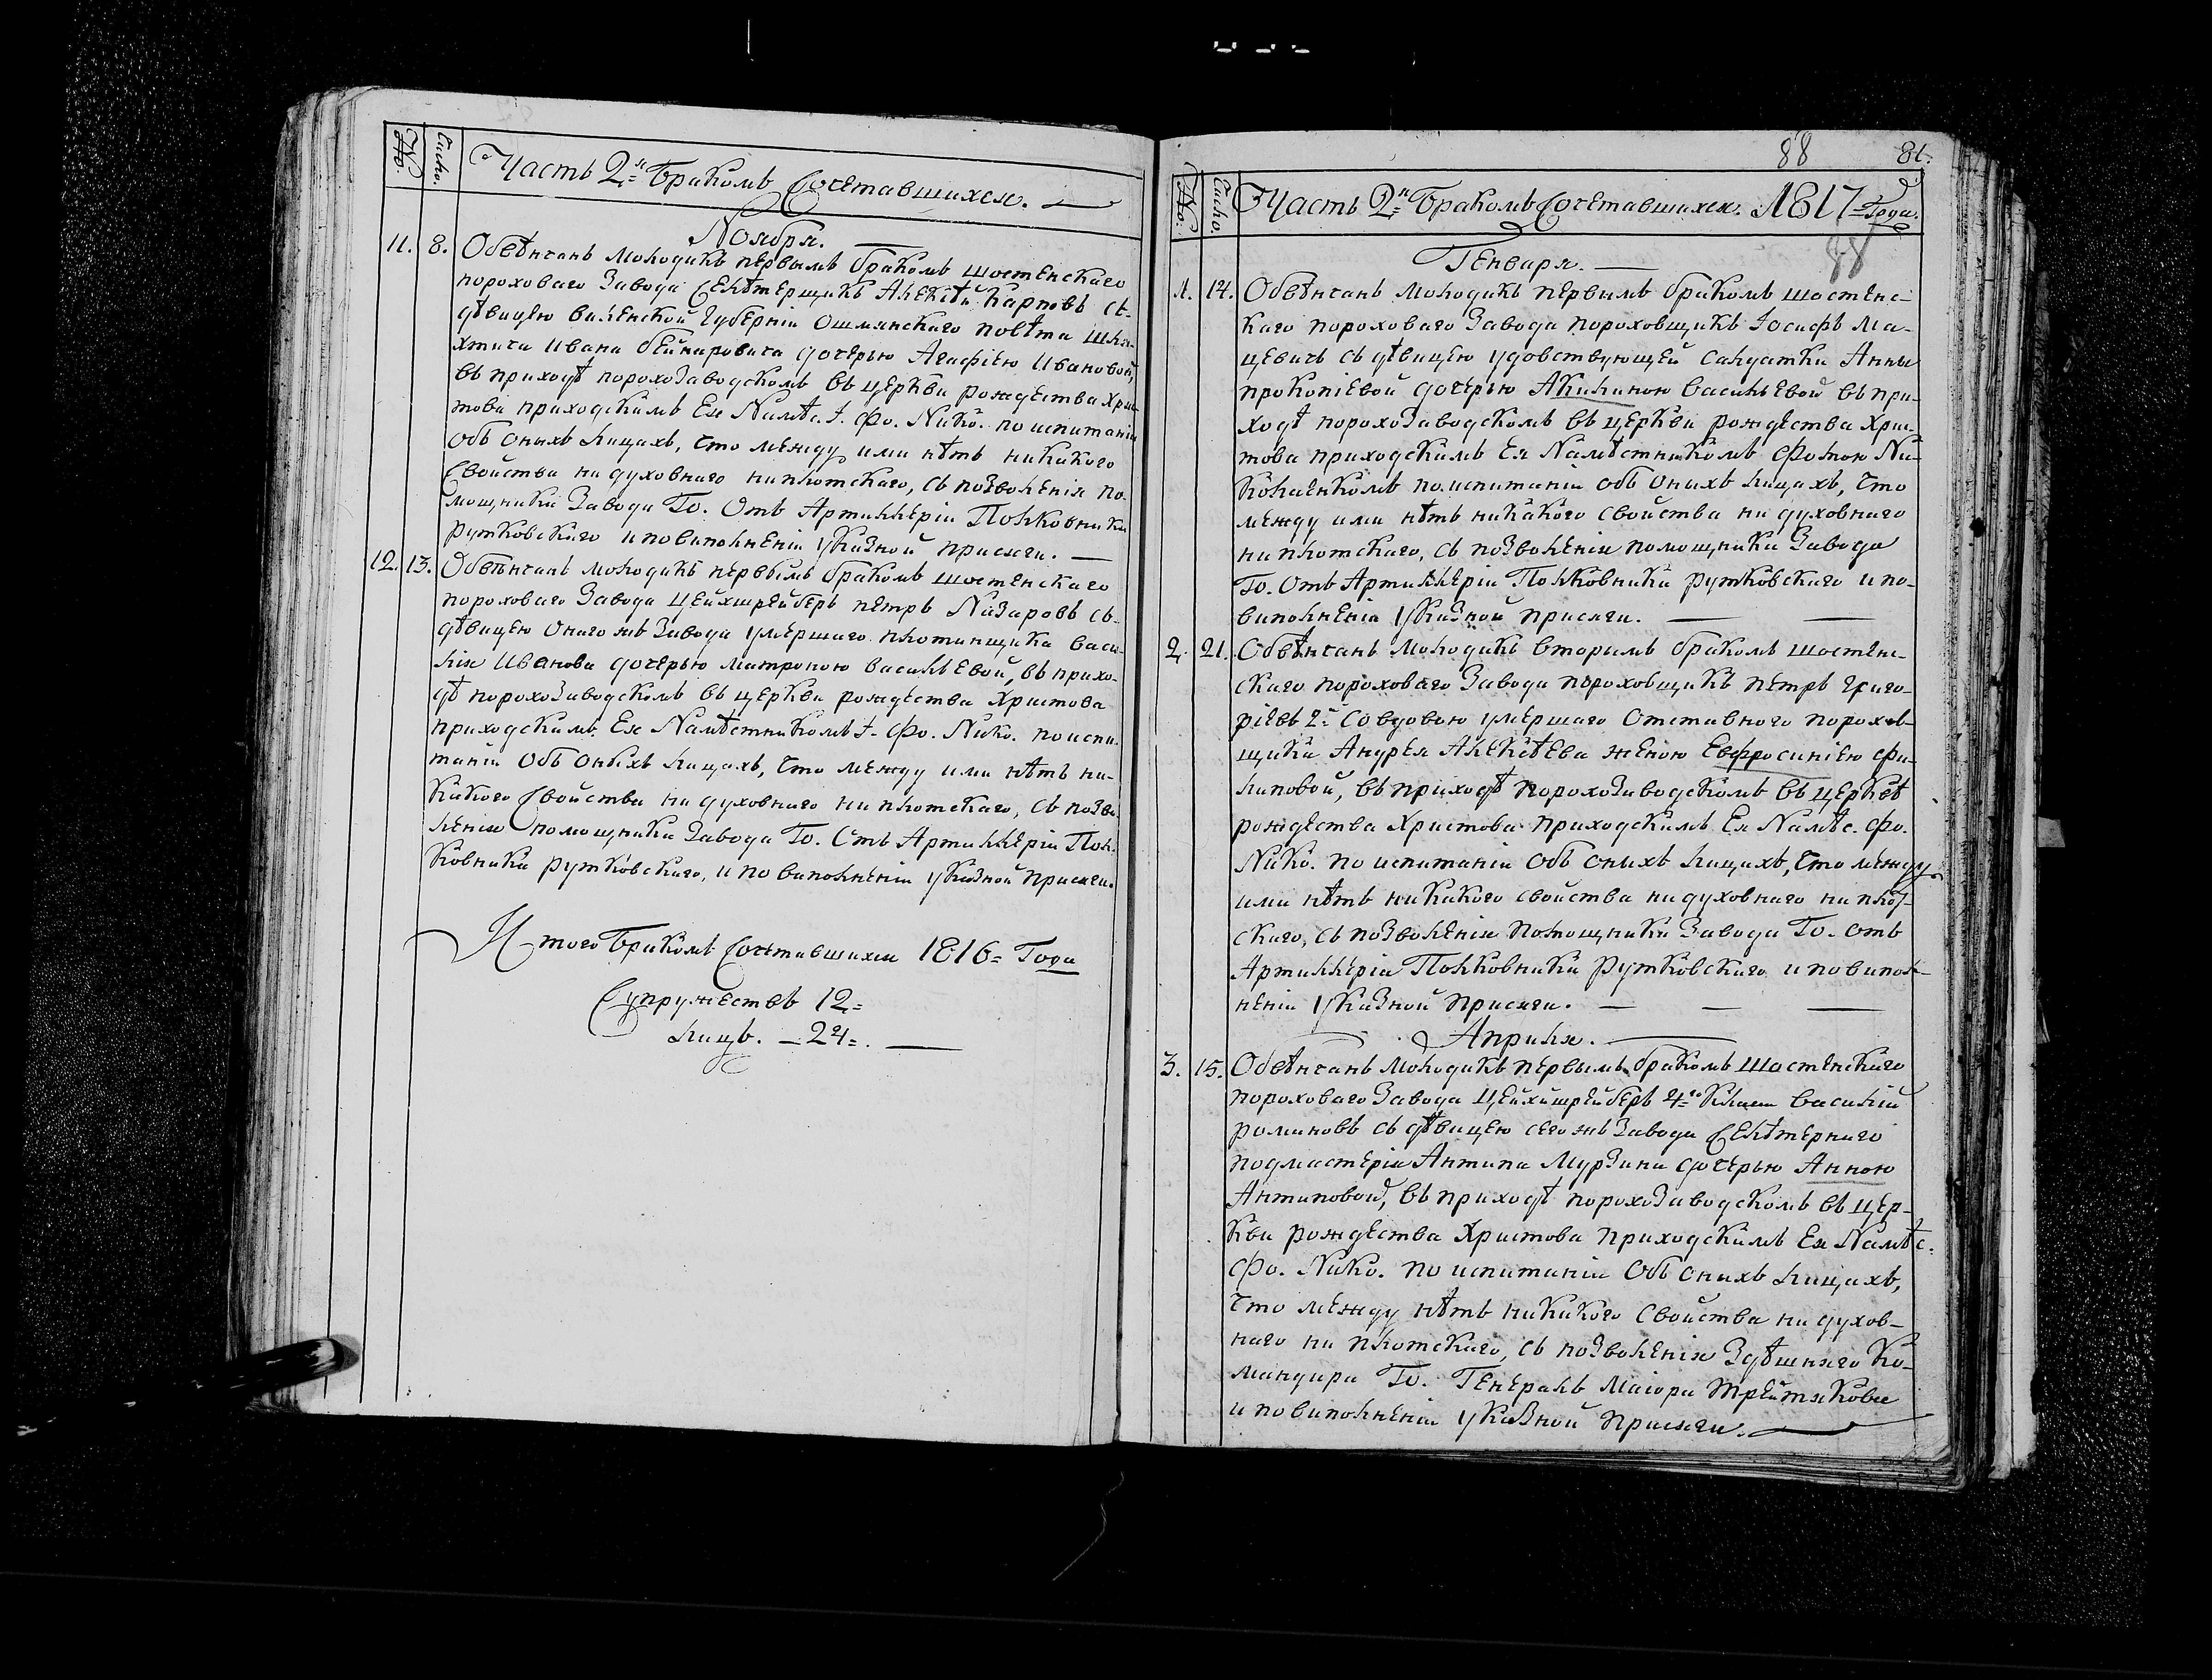 № Число. Часть 2я Бракомъ Сочетавшихся.
Ноября.
11. 8. Обвѣнчанъ молодикъ первымъ бракомъ шостенскаго
пороховаго завода Селѣтерщикъ Алексѣй Карповъ съ
дѣвицею виленской губерніи ошмянскаго повѣта шля-
хтича Ивана бейнаровича дочерью Агафіею Ивановой,
въ приходѣ пороxозаводскомъ въ церкви рождества Хрис
това приходскимъ Ея Намѣс. І. Фо. Нико. по испитаніи
объ оныхъ лицахъ, что между ими нѣтъ никакого
Свойства ни духовнаго ни плотскаго, съ позволенія по-
мощника завода Го. Отъ Артиллеріи Полковника
рутковскаго и по виполненіи указной присяги.
12. 13. Обвѣнчанъ молодикъ первымъ бракомъ шостенскаго
пороховаго завода цейхшрейберъ петръ Назаровъ съ
дѣвицею онаго жъ завода умершаго плотинщика васи-
лія Иванова дочерью матроною васильевой, въ прихо-
дѣ пороxозаводскомъ въ церкви рождества Христова
приходскимъ Ея Намѣстникомъ І. Фо. Нико. по испи-
таніи объ оныхъ лицахъ, что между ими нѣтъ ни-
какого Свойства ни духовнаго ни плотскаго, съ позво
ленія помощника завода Го. Отъ Артиллеріи Пол-
ковника рутковскаго, и по виполненіи указной присяги.
Итого Бракомъ Сочетавшихся 1816= Года
Супружествъ 12=
лицъ. – 24=.
88 81.
№ Число. Часть 2я Бракомъ Сочетавшихся. 1817= Года.
88
Генваря.
1. 14. Обвѣнчанъ молодикъ первымъ бракомъ шостенс-
каго пороховаго завода пороховщикъ Іосифъ ма-
цевичъ съ дѣвицею удовствующей салдатки Анны
прокопіевой дочерью Акилиною васильевой въ при-
ходѣ пороxозаводскомъ въ церкви рождества Хрис-
това приходскимъ Ея Намѣстникомъ Фомою Ни-
колаенкомъ по испитаніи объ онихъ лицахъ, что
между ими нѣтъ никакого свойства ни духовнаго
ни плотскаго, съ позволенія помощника завода
Го. Отъ Артиллеріи Полковника рутковскаго и по-
виполненіи указной присяги.
2. 21. Обвѣнчанъ молодикъ вторимъ бракомъ шостен-
скаго пороховаго завода пороховщикъ петръ григо-
ріевъ 2й Со вдовою умершаго Отставного порохов-
щика Андрея Алексѣева женою Евфросиніею Фи-
липовой, въ приходѣ пороxозаводскомъ въ церквѣ
рождества Христова приходскимъ Ея Намѣс. Фо.
Нико. по испитаніи объ онихъ лицахъ, что между
ими нѣтъ никакого свойства ни духовнаго ни плот-
скаго, съ позволенія помощника завода Го. отъ
Артиллеріи Полковника рутковскаго и по випол-
неніи указной присяги.
Априля.
3. 15. Обвѣнчанъ молодикъ первымъ бракомъ шостенскаго
пороховаго завода цейхшрейберъ 4го класи василій
романовъ съ дѣвицею сего жъ завода Селѣтернаго
подмастерія Антипа мурзина дочерью Анною
Антиповой, въ приходѣ пороxозаводскомъ въ цер-
кви рождества Христова приходскимъ Ея Намѣс.
Фо. Нико. по испитаніи объ онихъ лицахъ,
что между нѣтъ никакого свойства ни духов-
наго ни плотскаго, съ позволенія здѣшняго Ко-
мандира Го. Генералъ маіора трейтякова
и по виполненіи указной присяги.